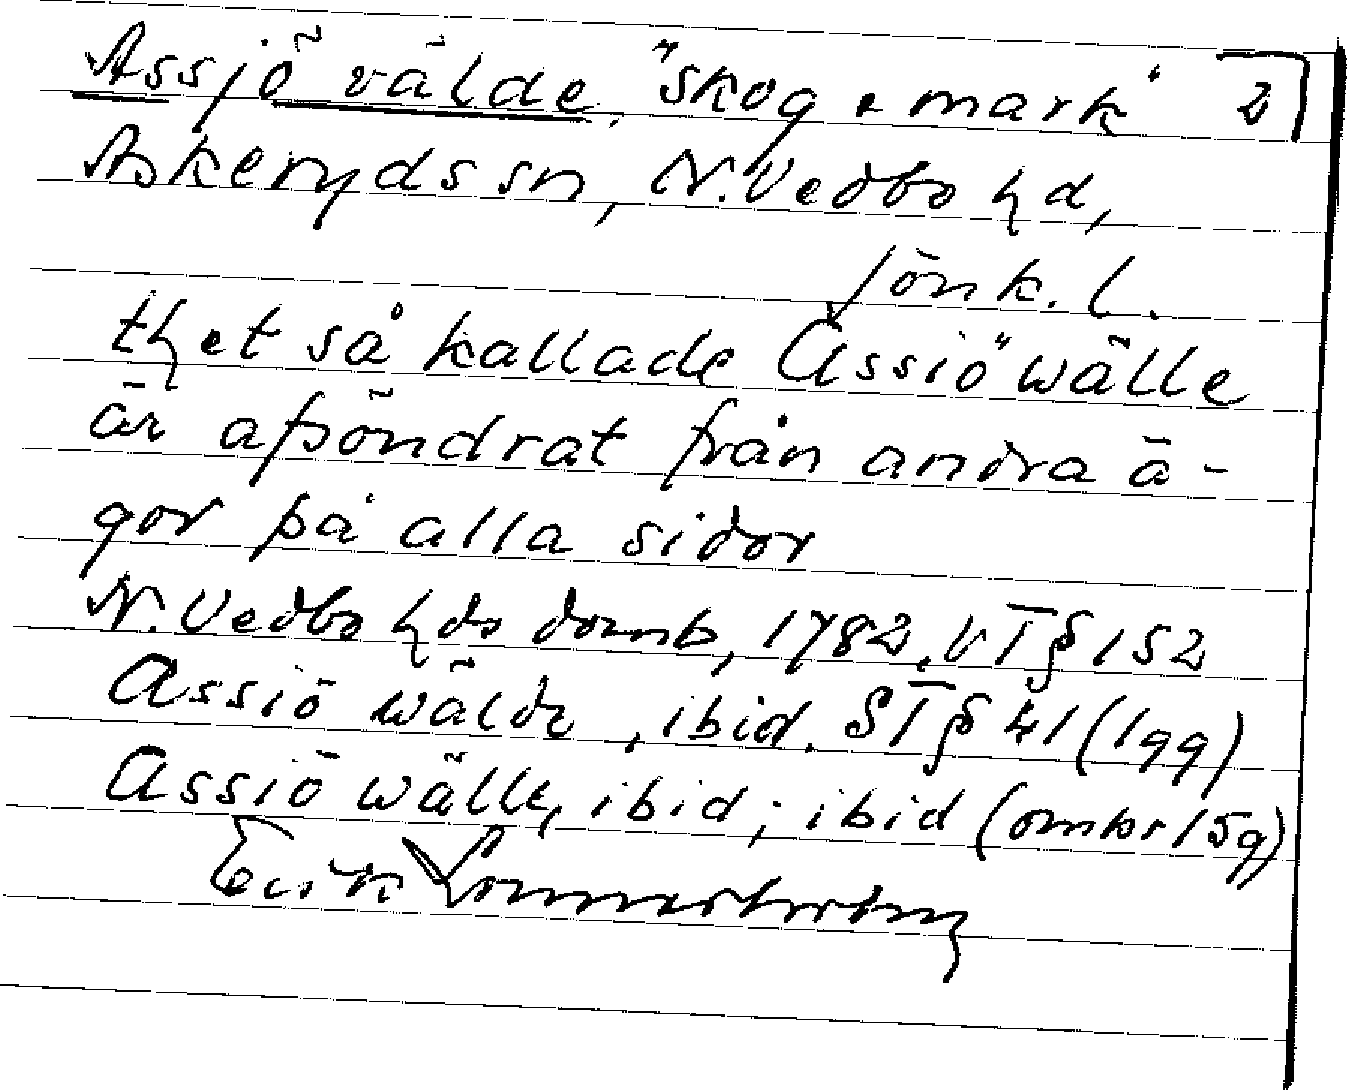 Assjö välde, "skog o mark" 2
Askeryds sn, N. Vedbo hd,
Jönk. l.
thet så kallade Assiö wälle
är afsöndrat från andra ä-
gor på alla sidor
N. Vedbo hds domb, 1782, VT § 152
Assiö wälde, ibid. ST § 41 (1 gg)
Assiö wälle, ibid; ibid (omkr 15 g)
Erik